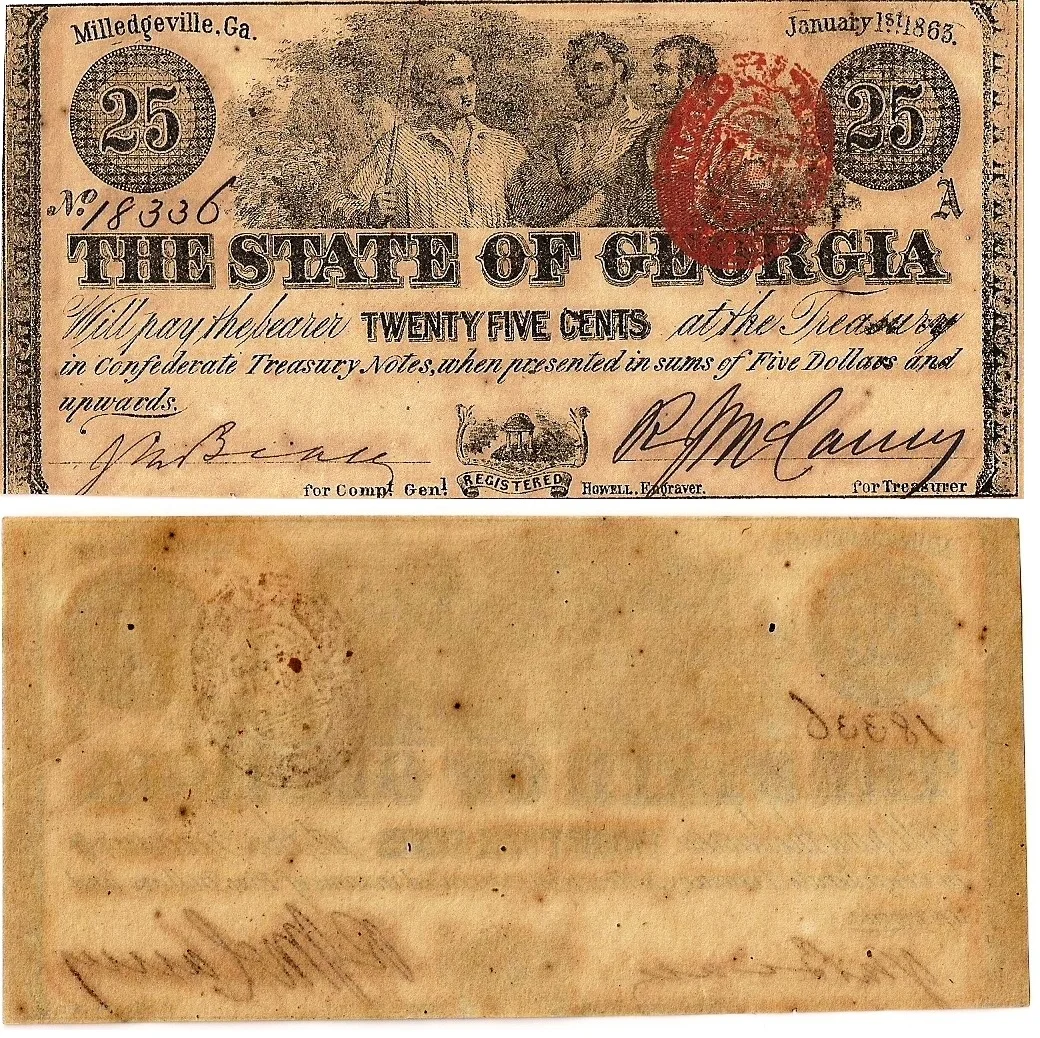 Milledgeville, Ga. January 1st 1863.
25 25
No. 18336 A
THE STATE OF GEORGIA
Will pay the bearer TWENTY FIVE CENTS at the Treasury
in Confederate Treasury Notes, when presented in sums of Five Dollars and
upwards.
for Compt Genl REGISTERED HOWELL. Engraver. for Treasurer
18336